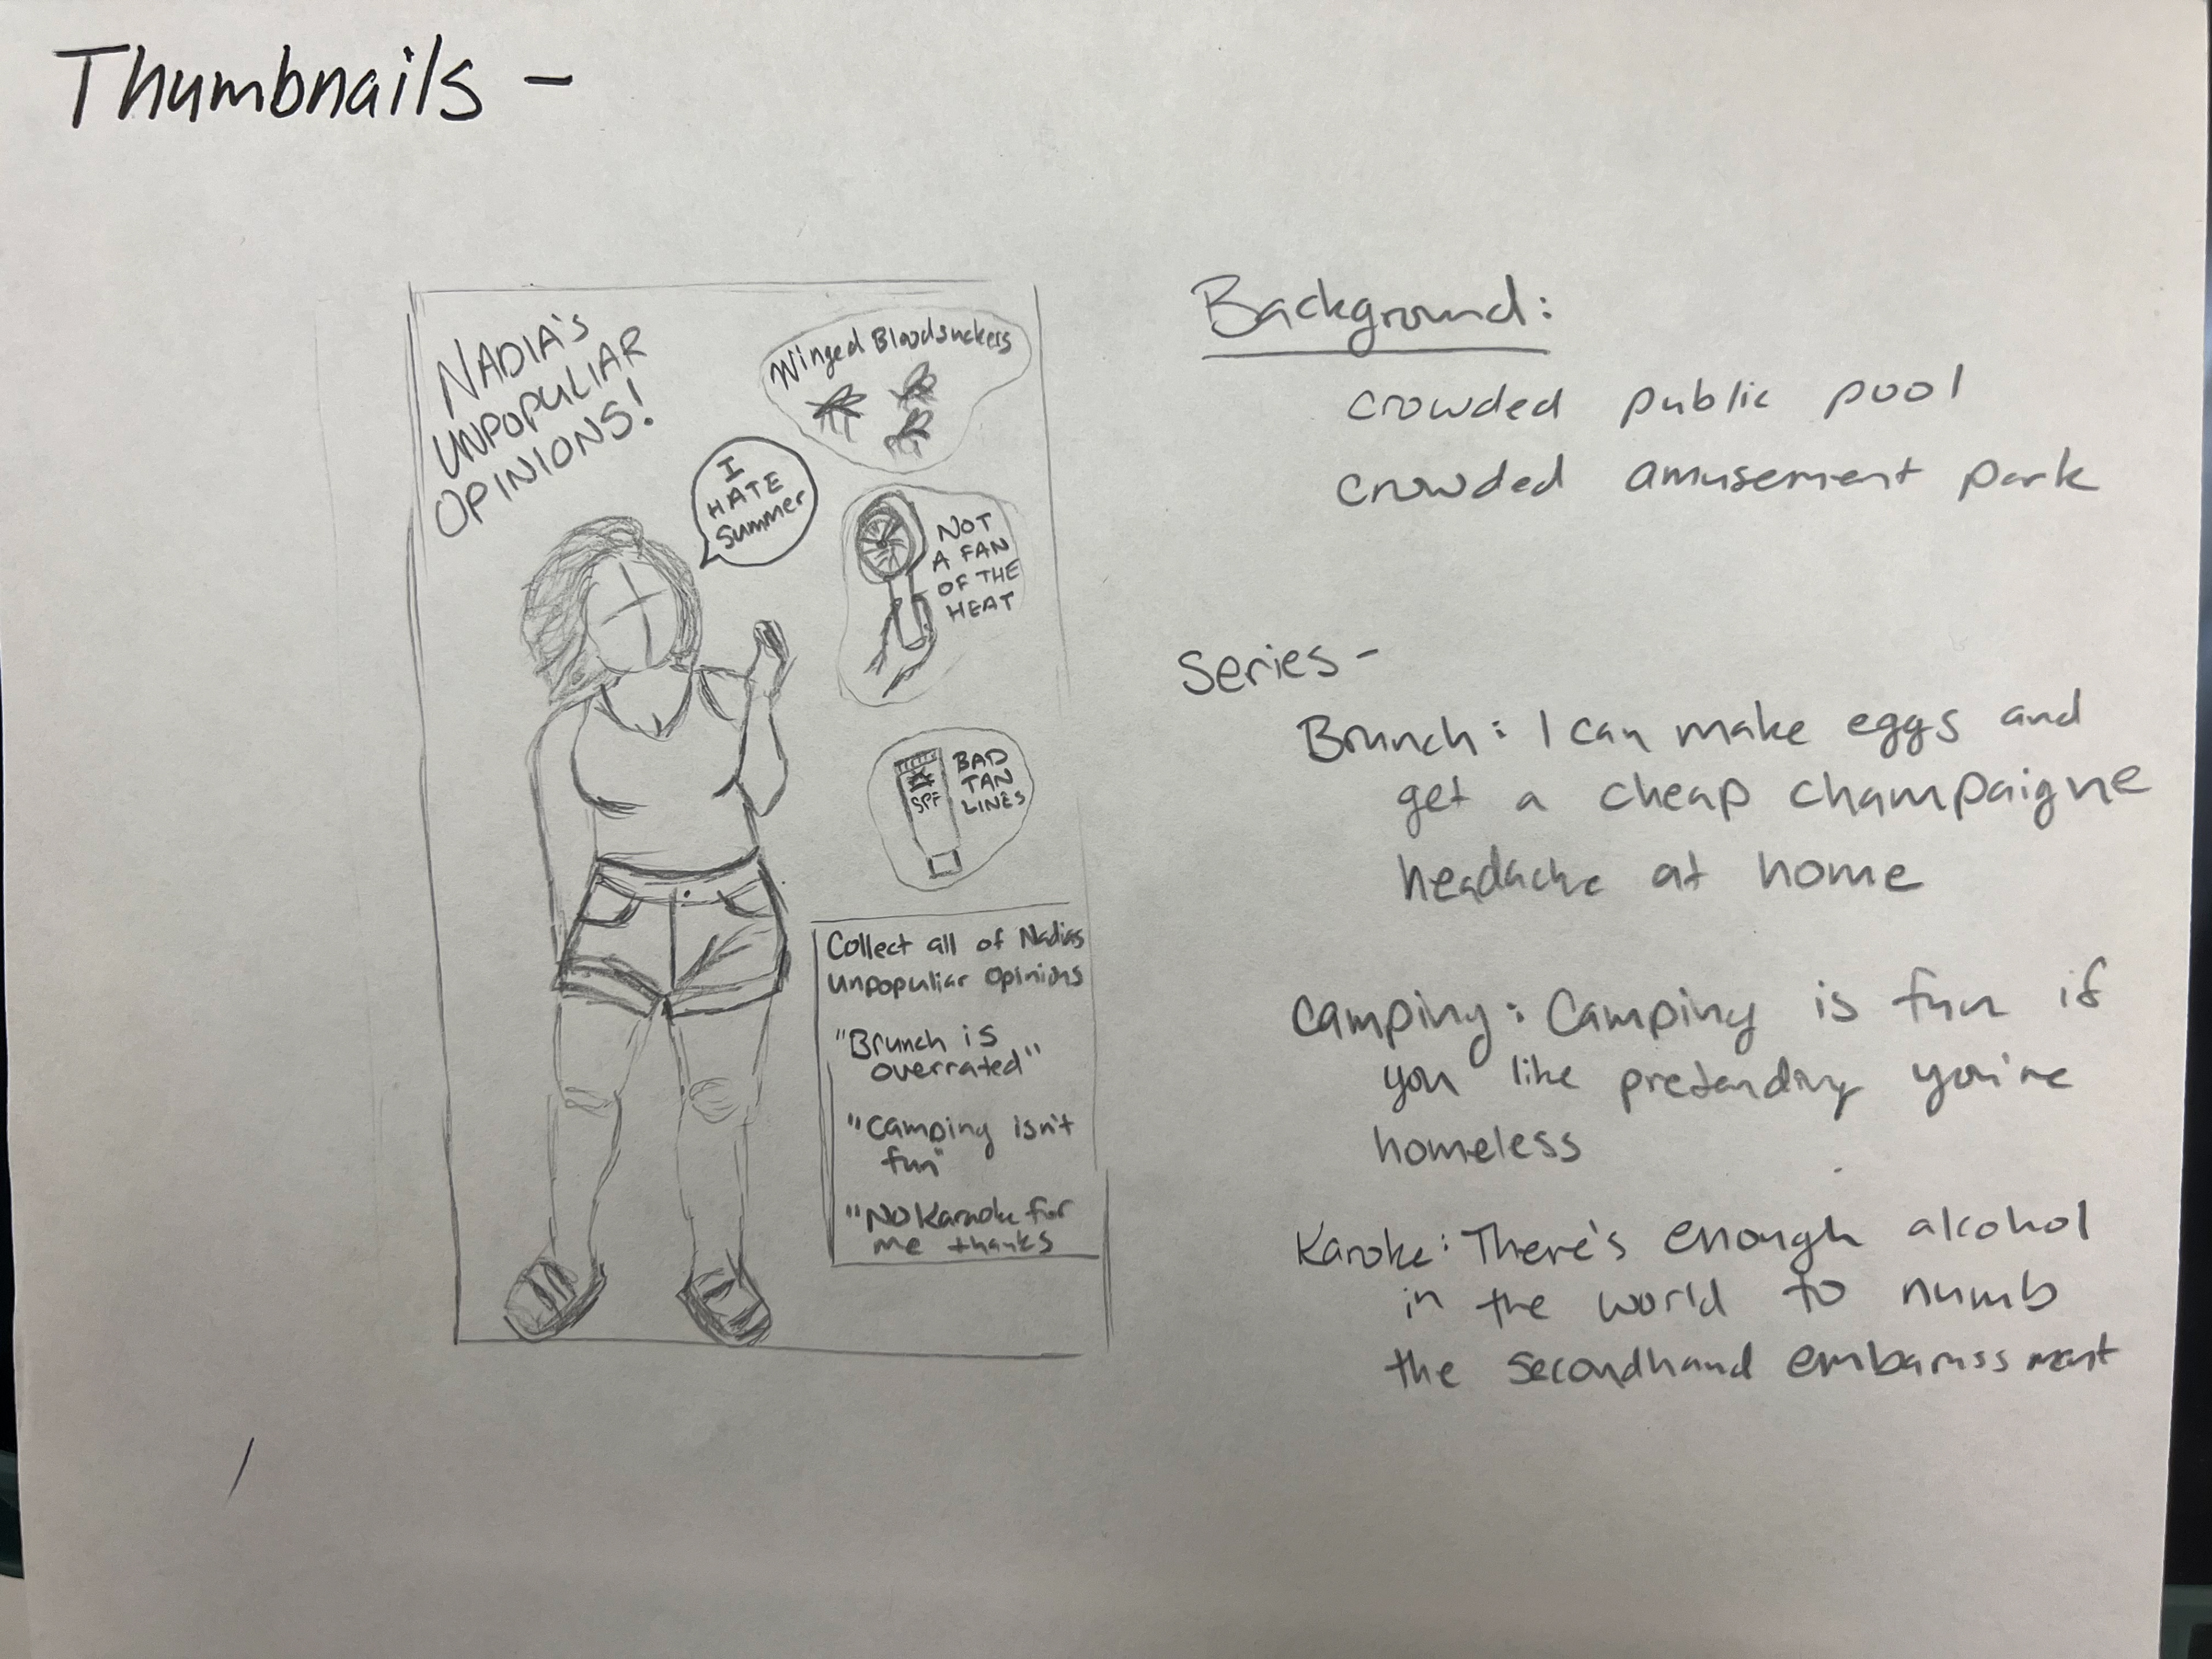 Thumbnails -
NADIA'S
UNPOPULIAR
OPINIONS!
Winged Bloodsuckers
I
HATE
Summer
NOT
A FAN
OF THE
HEAT
SPF
BAD
TAN
LINES
Collect all of Nadias
unpopuliar opinions
"Brunch is
overrated"
"Camping isn't
fun"
"No Karaoke for
me thanks
Background:
crowded public pool
crowded amusement park
Series -
Brunch: I can make eggs and
get a cheap champaigne
headache at home
Camping: Camping is fun if
you like pretending you're
homeless
Karoke: There's enough alcohol
in the world to numb
the secondhand embarissment